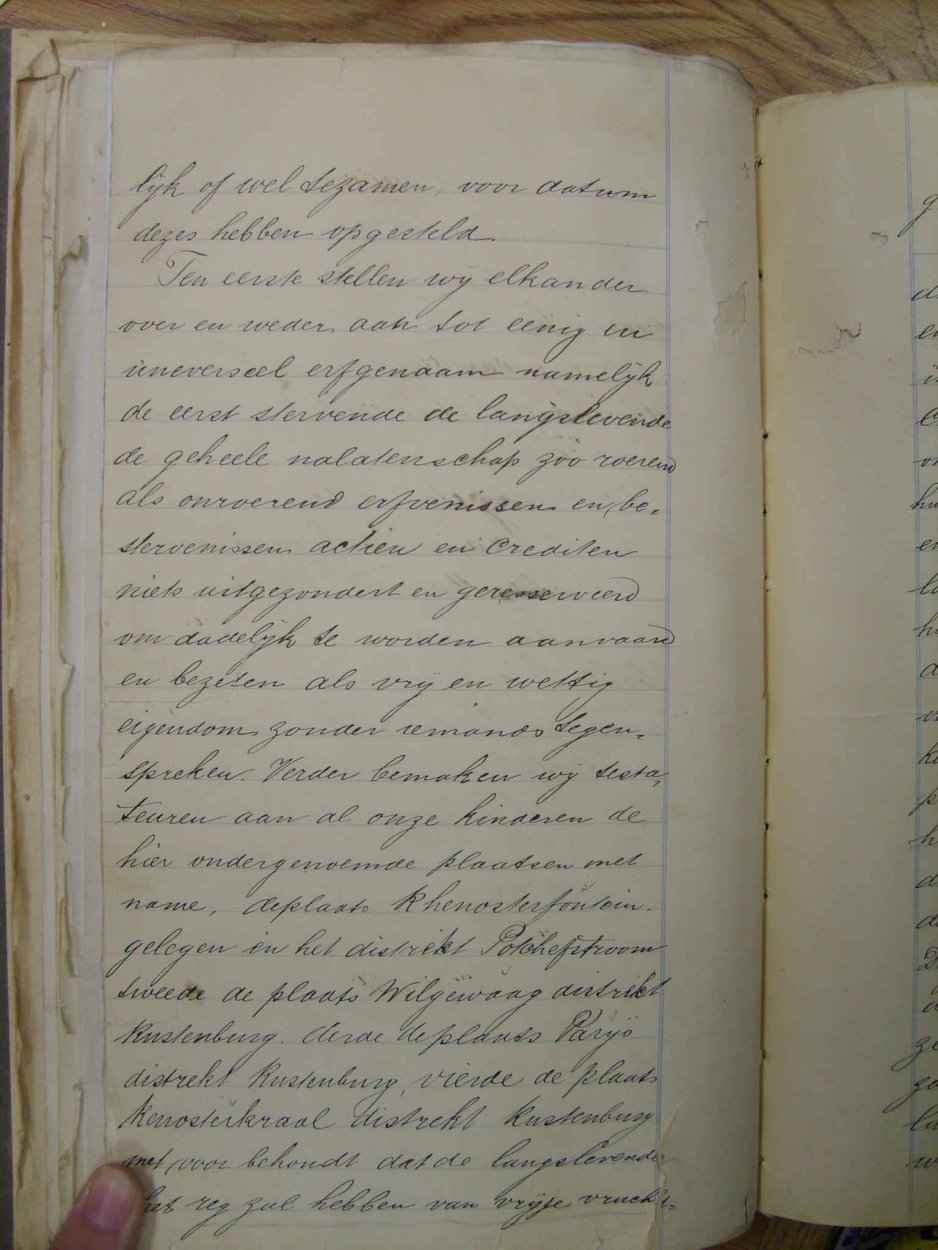 lijk of wel tezamen, voor datum
dezes hebben opgesteld
Ten eerste stellen wij elkander
over en weder aan tot eenig en
uneverseel erfgenaam namelijk
de eerst stervende de langslevende
de geheele nalatenschap zoo roerend
als onroerend erfvenissen en, be-
stervenissen actien en Crediten
niets uitgezondert en geresserveerd
om dadelijk te worden aanvaard
en bezeten als vrij en wettig
eigendom zonder iemands tegen-
spreken. Verder bemaken wij testa-
teuren aan al onze kinderen de
hier ondergenoemde plaatsen met
name, deplaats Rhenosterfontein.
gelegen in het distrikt Potchefstroom
tweede de plaats Wilgewaag distrikt
Rustenburg. derde deplaats Parijs
distrekt Rustenburg, vierde de plaats
Renosterkraal distrekt Rustenburg
met, voor behoudt dat de langslevende
het reg zal hebben van vrije vrucht-